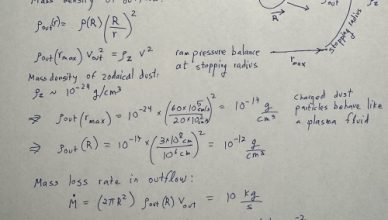 Mass density of outflow:
ρout(r) = ρ(R) (R/r)²
R
ρout(rmax) Vout² = ρz v²
ram pressure balance
at stopping radius
rmax
stopping radius
Mass density of zodaical dust:
ρz ~ 10⁻²⁴ g/cm³
⇒ ρout(rmax) = 10⁻²⁴ × (60×10⁵ cm/s / 20×10² cm/s)² = 10⁻¹⁷ g/cm³
charged dust
particles behave like
a plasma fluid
⇒ ρout(R) = 10⁻¹⁷ × (3×10⁸ cm / 10⁶ cm)² = 10⁻¹² g/cm³
Mass loss rate in outflow:
Ṁ = (2πR²) ρout(R) Vout = 10 kg/s